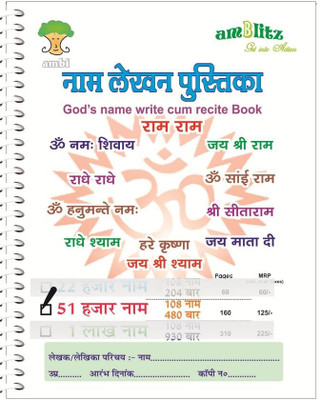 amBlitz
Get into Action
ambi
नाम लेखन पुस्तिका
God's name write cum recite Book
राम राम
ॐ नमः शिवाय
जय श्री राम
राधे राधे
ॐ सांई राम
ॐ हनुमन्ते नमः
श्री सीताराम
राधे श्याम
हरे कृष्णा
जय माता दी
जय श्री श्याम
Pages MRP
22 हजार नाम 108 नाम 204 बार 68 60/-
51 हजार नाम 108 नाम 480 बार 160 125/-
1 लाख नाम 108 नाम 930 बार 310 225/-
लेखक/लेखिका परिचय :- नाम
उम्र.......... आरंभ दिनांक.................... कॉपी न०............